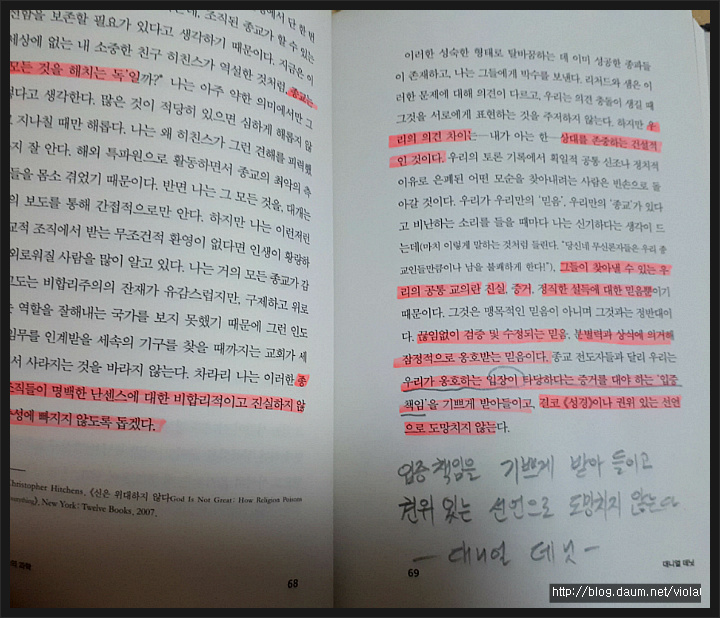 전함을 보존할 필요가 있다고 생각하기 때문이다. 지금은 이
세상에 없는 내 소중한 친구 히친스가 역설한 것처럼, 종교는
모든 것을 해치는 독'일까?* 나는 아주 약한 의미에서만 그
렇다고 생각한다. 많은 것이 적당히 있으면 심하게 해롭지 않
지나칠 때만 해롭다. 나는 왜 히친스가 그런 견해를 피력했
지 잘 안다. 해외 특파원으로 활동하면서 종교의 최악의 측
들을 몸소 겪었기 때문이다. 반면 나는 그 모든 것을, 대개는
의 보도를 통해 간접적으로만 안다. 하지만 나는 이런저런
교적 조직에서 받는 무조건적 환영이 없다면 인생이 황량하
외로워질 사람을 많이 알고 있다. 나는 거의 모든 종교가 감
그도는 비합리주의의 잔재가 유감스럽지만, 구제하고 위로
는 역할을 잘해내는 국가를 보지 못했기 때문에 그런 인도
임무를 인계받을 세속의 기구를 찾을 때까지는 교회가 세
서 사라지는 것을 바라지 않는다. 차라리 나는 이러한 종
조직들이 명백한 난센스에 대한 비합리적이고 진실하지 않
성에 빠지지 않도록 돕겠다.
Christopher Hitchens, 《신은 위대하지 않다God Is Not Great: How Religion Poisons
New York: Twelve Books, 2007.
68
이러한 성숙한 형태로 탈바꿈하는 데 이미 성공한 종파들
이 존재하고, 나는 그들에게 박수를 보낸다. 리처드와 샘은 이
러한 문제에 대해 의견이 다르고, 우리는 의견 충돌이 생길 때
그것을 서로에게 표현하는 것을 주저하지 않는다. 하지만 우
리의 의견 차이는—내가 아는 한—상대를 존중하는 건설적
인 것이다. 우리의 토론 기록에서 획일적 공통 신조나 정치적
이유로 은폐된 어떤 모순을 찾아내려는 사람은 빈손으로 돌
아갈 것이다. 우리가 우리만의 '믿음', 우리만의 '종교'가 있다
고 비난하는 소리를 들을 때마다 나는 신기하다는 생각이 드
는데(마치 이렇게 말하는 것처럼 들린다. "당신네 무신론자들은 우리 종
교인들만큼이나 남을 불쾌하게 한다!"), 그들이 찾아낼 수 있는 우
리의 공통 교의란 진실, 증거, 정직한 설득에 대한 믿음뿐이기
때문이다. 그것은 맹목적인 믿음이 아니며 그것과는 정반대이
다. 끊임없이 검증 및 수정되는 믿음, 분별력과 상식에 의거해
잠정적으로 옹호받는 믿음이다. 종교 전도자들과 달리 우리는
우리가 옹호하는 입장이 타당하다는 증거를 대야 하는 '입증
책임'을 기쁘게 받아들이고, 결코 《성경》이나 권위 있는 선언
으로 도망치지 않는다.
입증책임을 기쁘게 받아 들이고
권위 있는 선언으로 도망치지 않는다
— 대니얼 데닛 —
69
대니얼 데닛
http://blog.daum.net/violal